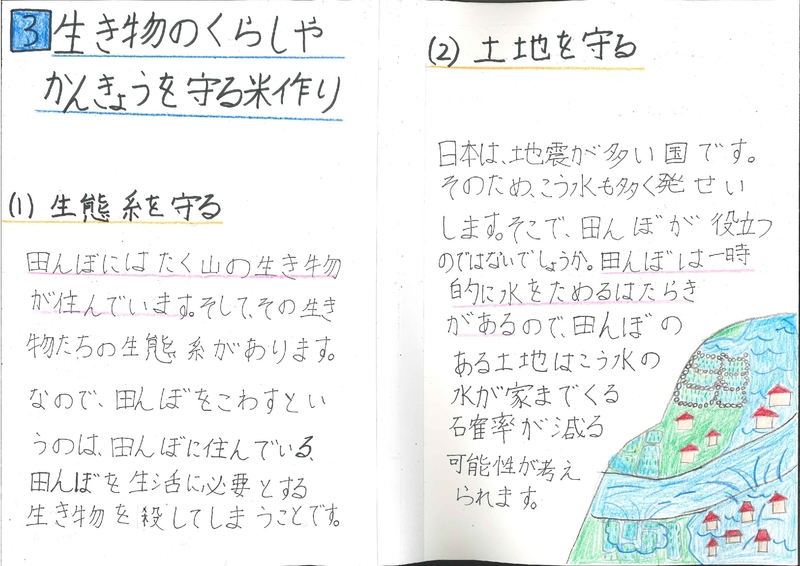 3 生き物のくらしや
かんきょうを守る米作り
(1) 生態系を守る
田んぼにはたく山の生き物
が住んでいます。そして、その生き
物たちの生態系があります。
なので、田んぼをこわすとい
うのは、田んぼに住んでいる、
田んぼを生活に必要とする
生き物を殺してしまうことです。
(2) 土地を守る
日本は、地震が多い国です。
そのため、こう水も多く発せい
します。そこで、田んぼが役立つ
のではないでしょうか。田んぼは一時
的に水をためるはたらき
があるので、田んぼの
ある土地はこう水の
水が家までくる
確率が減る
可能性が考え
られます。